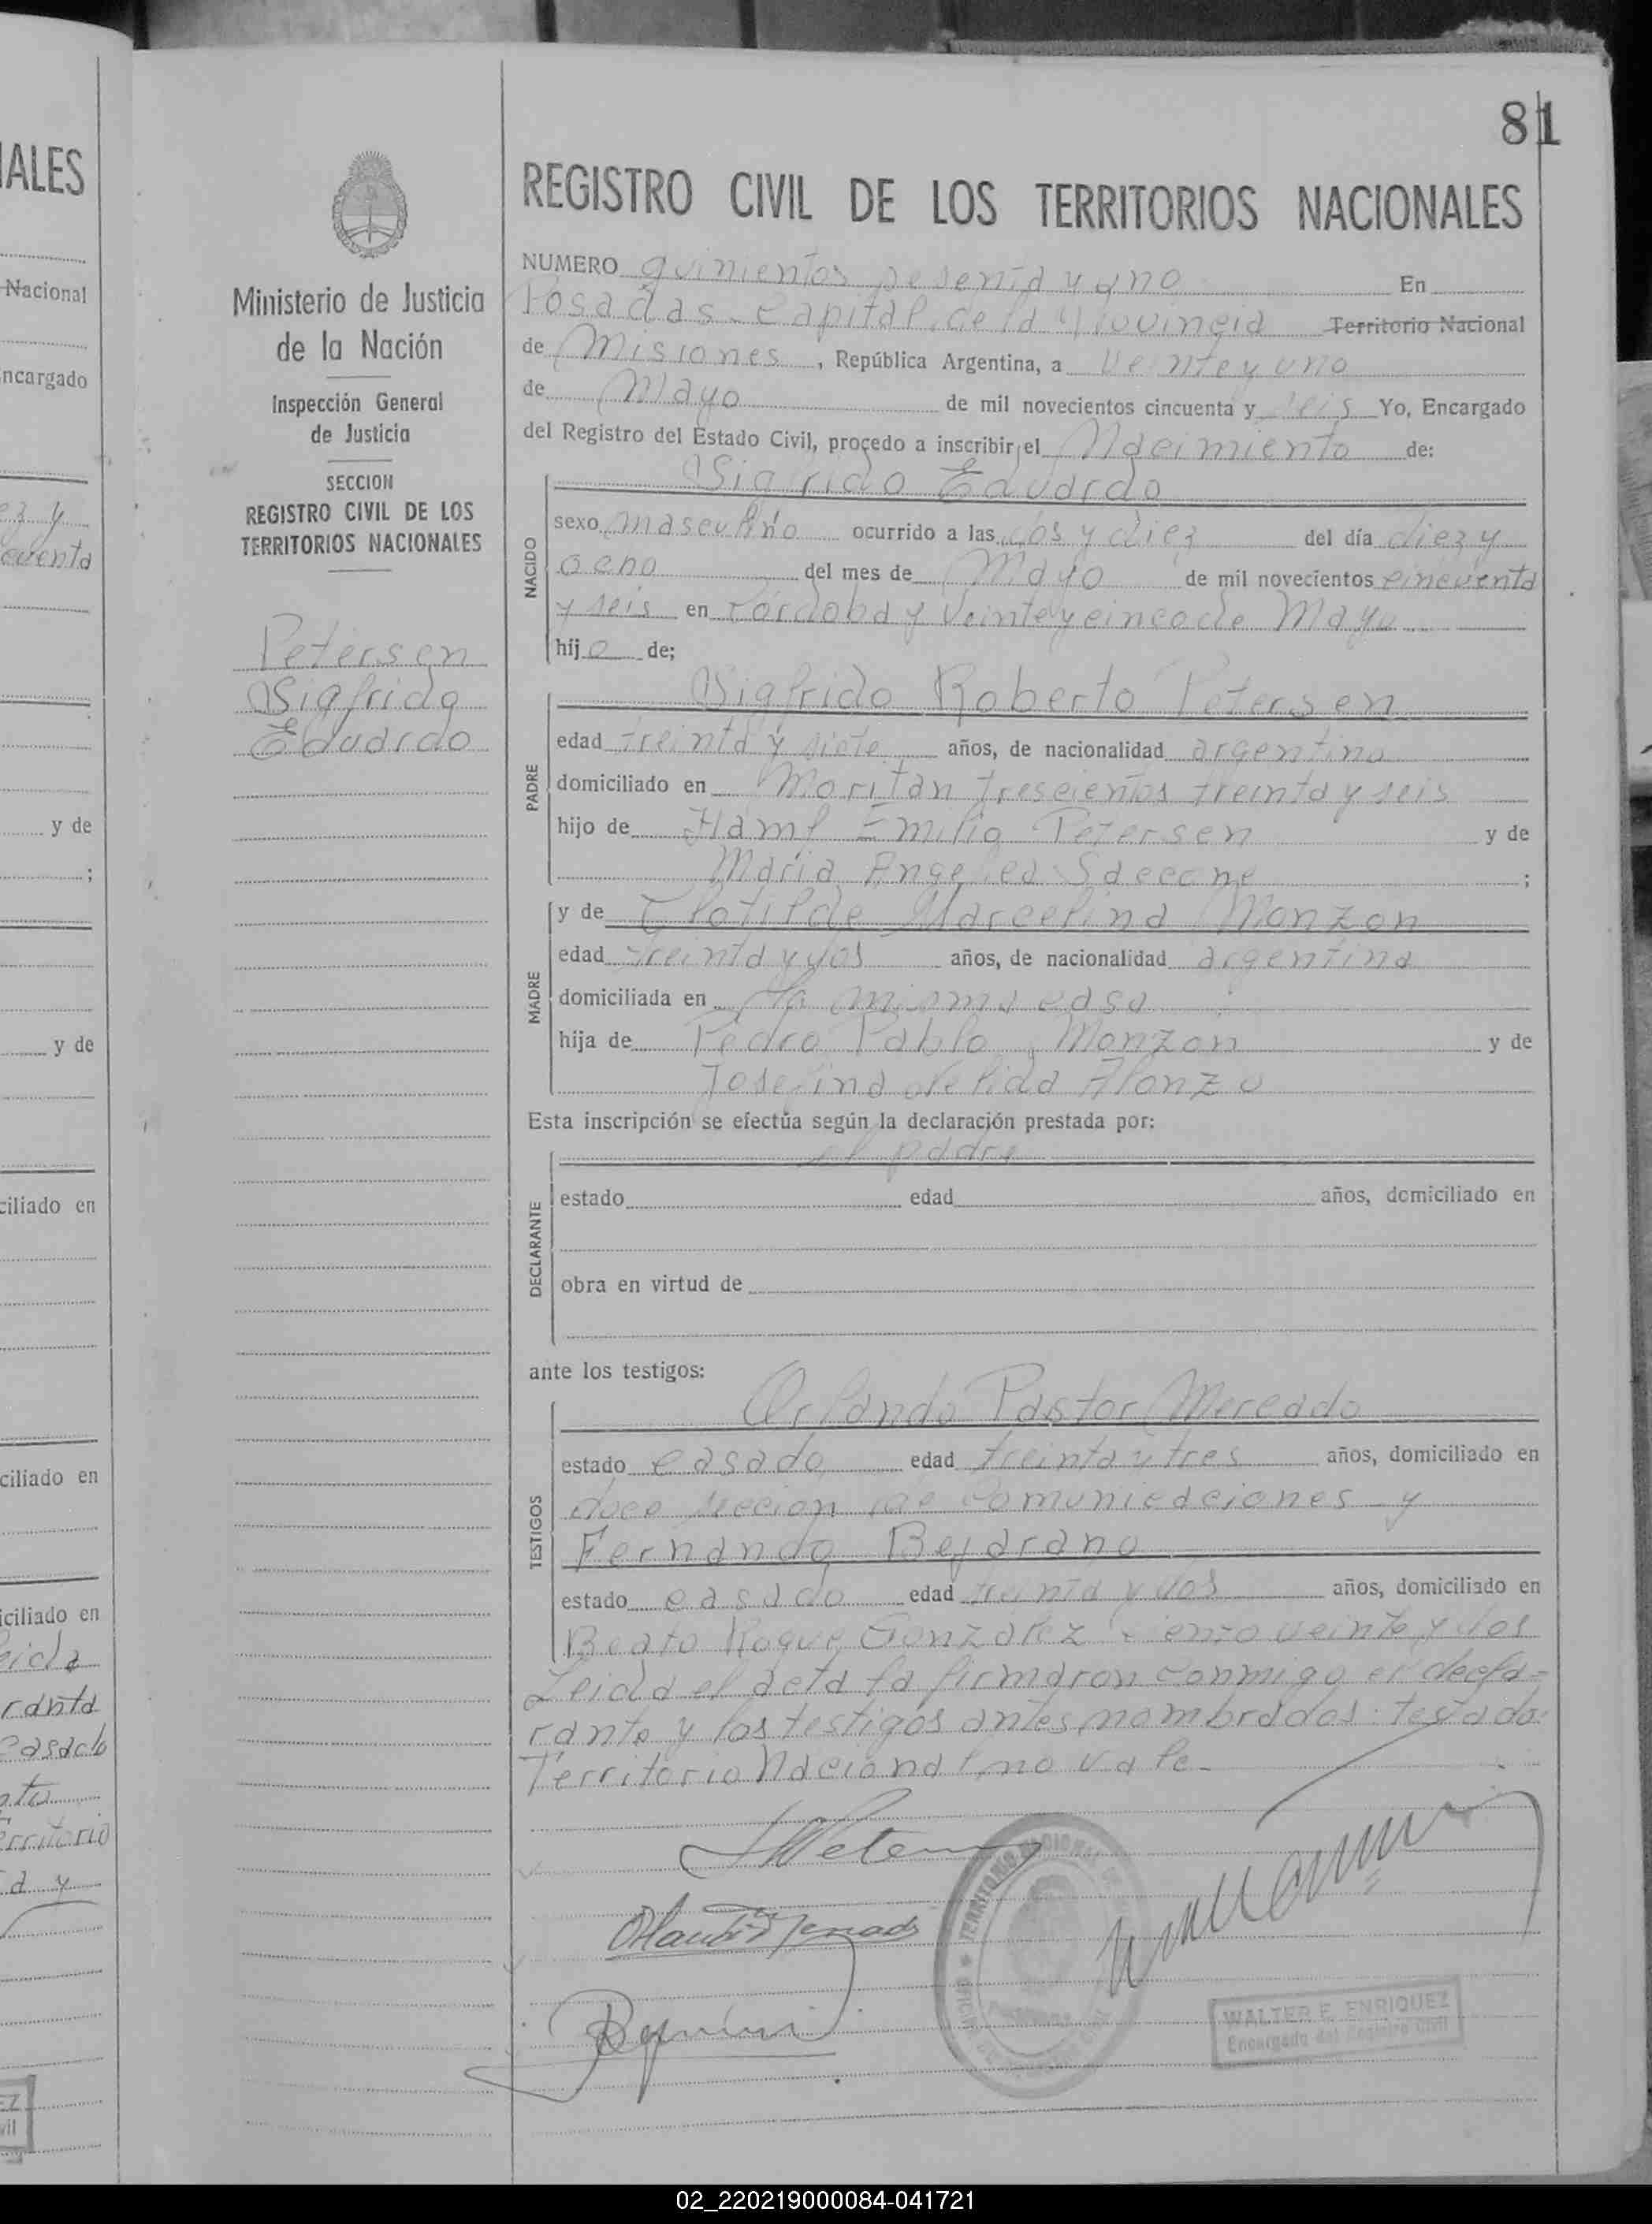 81
REGISTRO CIVIL DE LOS TERRITORIOS NACIONALES
NUMERO quinientos sesenta y uno En
Posadas - Capital de la Provincia Territorio Nacional
de Misiones, República Argentina, a veinte y uno
de Mayo de mil novecientos cincuenta y seis Yo, Encargado
del Registro del Estado Civil, procedo a inscribir el Nacimiento de:
Sigfrido Eduardo
NACIDO
sexo masculino ocurrido a las dos y diez del día diez y
ocho del mes de Mayo de mil novecientos cincuenta
y seis en Córdoba y Veinte y cinco de Mayo
hijo de;
Sigfrido Roberto Petersen
PADRE
edad treinta y siete años, de nacionalidad argentina
domiciliado en trescientos treinta y seis
hijo de Emilio Petersen y de
María Angelica Saccone ;
MADRE
y de Clotilde Marcelina Monzon
edad treinta y dos años, de nacionalidad argentina
domiciliada en la misma casa
hija de Pedro Pablo Monzon y de
Josefina Alonzo
Esta inscripción se efectúa según la declaración prestada por:
el padre
DECLARANTE
estado edad años, domiciliado en
obra en virtud de
ante los testigos:
Orlando Pastor Mercado
TESTIGOS
estado casado edad treinta y tres años, domiciliado en
doce seccion de comunicaciones y
Fernando Bejarano
estado casado edad treinta y dos años, domiciliado en
Beato Roque González ciento veinte y dos
Leida el acta la firmaron conmigo el decla-
rante y los testigos antes nombrados: testado:
Territorio Nacional, no vale -
WALTER E. ENRIQUEZ
Encargado del Registro Civil
Ministerio de Justicia
de la Nación
Inspección General
de Justicia
SECCION
REGISTRO CIVIL DE LOS
TERRITORIOS NACIONALES
Petersen
Sigfrido
Eduardo
02_220219000084-041721